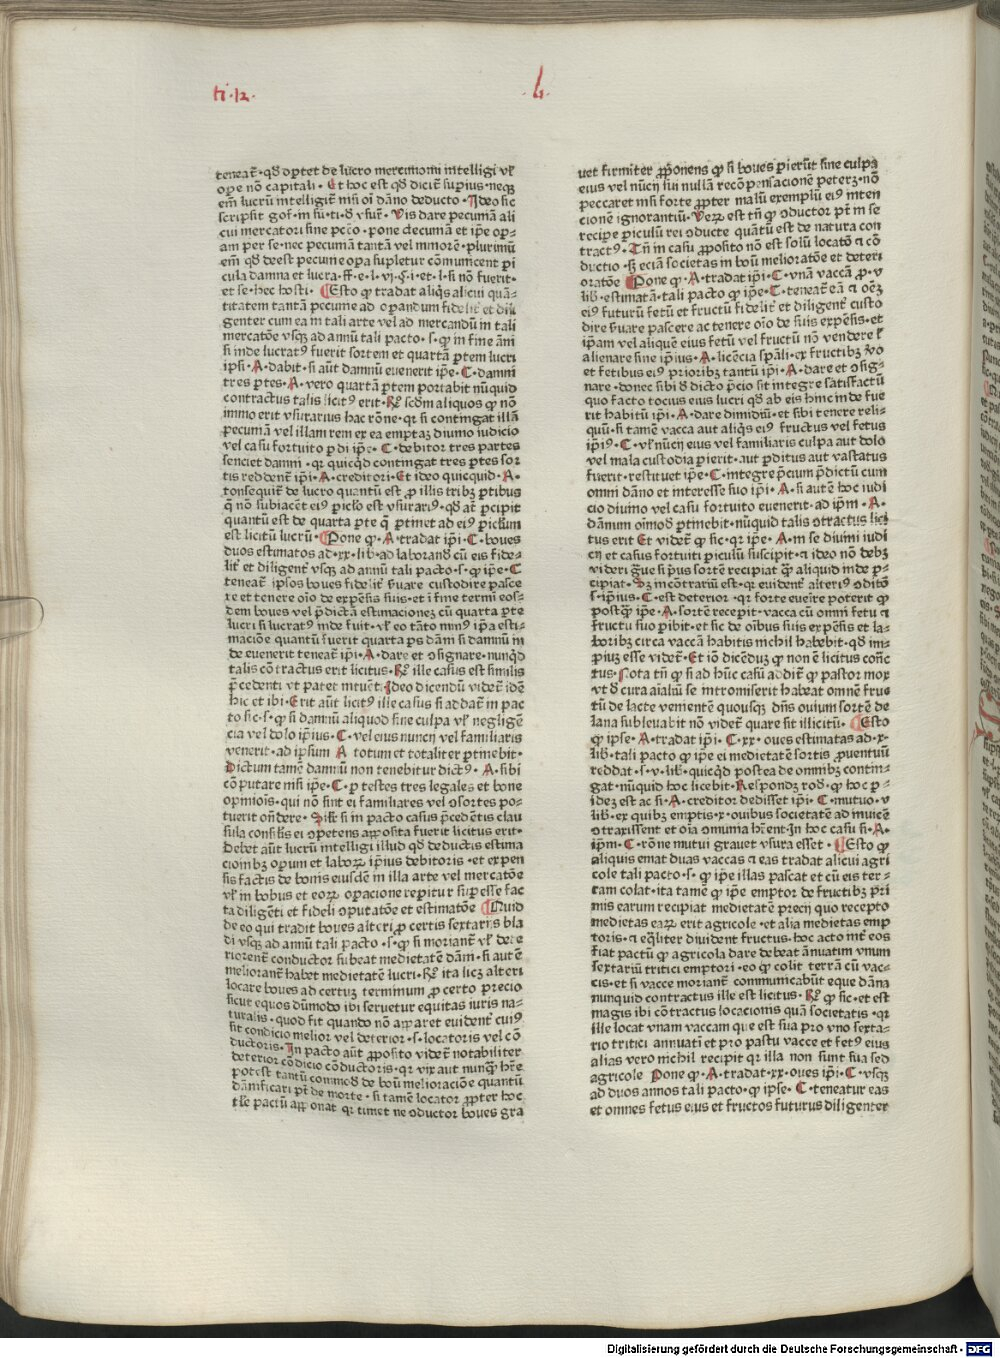 ti · 12 ·
· L ·
teneat̃ · qđ oꝑtet de lucro mercimonii intelligi vł
oꝑe nō capitali · Et hoc est qđ dicit̃ suꝑius · neqꝫ
em̄ lucrū intelligit̃ nisi oī dāno deducto · Ideo sic
scripsit gof · in su · ti · đ vsur̃ · Vis dare pecuniā ali
cui mercatori sine pctō · pone decimā et ip̄e oꝑ-
am per se · nec pecuniā tantā vel minorē · plurimū
em̄ qđ deest pecunie oꝑa supletur cōmunicent ꝑi
cula damna et lucra · ff · e · l · vj · § · i · et · l · si nō fuerit ·
et se · hec hosti · Esto ꝙ tradat aliq̄s alicui quā-
titatem tantā pecunie ad oꝑandum fidelit̃ et dili
genter cum ea in tali arte vel ad mercandū in tali
mercatōe vsqꝫ ad annū tali pacto · s · ꝙ in fine āni
si inde lucratꝰ fuerit sortem et quartā ꝑtem lucri
ip̄i · A · dabit · si aūt damnū euenerit ip̄e · C · damni
tres ꝑtes · A · vero quartā ꝑtem portabit nūquid
contractus talis licitꝰ erit · Rº scđm aliquos ꝙ nō
immo erit vsurarius hac rōne · qr si contingat illā
pecuniā vel illam rem ex ea emptaꝫ diuino iudicio
vel casu fortuito ꝑdi ip̄e · C · debitor tres partes
senciet damni · qr quicq̄d contingat tres ꝑtes sor
tis reddent̃ ip̄i · A · creditori · Et ideo quicquid · A ·
cōsequit̃ de lucro quantū est ꝓ illis tribꝫ ꝑtibus
q̄ nō subiacēt ei ꝑiclo est vsurariꝰ · qđ at̃ ꝑcipit
quantū est de quarta ꝑte q̄ ꝑtinet ad eiꝰ ꝑiclum
est licitū lucrū · Pone ꝙ · A · tradat ip̄i · C · boues
duos estimatos ad · xx · lib · ad laborand̄ cū eis fide-
lit̃ et diligent̃ vsqꝫ ad annū tali pacto · s · ꝙ ip̄e · C
teneat̃ ip̄os boues fidelit̃ ẜuare custodire pasce
re et tenere oīo de expensis suis · et ī fine termī eos-
dem boues vel p̄dictā estimacioneꝫ cū quarta ꝑte
lucri si lucratꝰ inde fuit · vł eo tāto minꝰ ip̄a esti-
maciōe quantū fuerit quarta ꝑs dām si damnū in
de euenerit teneat̃ ip̄i · A · dare et ɔsignare · nunqđ
talis cōtractus erit licitus · Rº ille casus est similis
p̄cedenti vt patet intuēt̃ · Ideo dicendū videt̃ idē
hic et ibi · Erit aūt licitꝰ ille casus si addat̃ in pac
to sic · s · ꝙ si damnū aliquod sine culpa vł negligē
cia vel dolo ip̄ius · C · vel eius nuncij vel familiaris
venerit · ad ip̄sum A totum et totaliter ꝑtinebit ·
Dictum tamē damnū non tenebitur dictꝰ · A · sibi
cōputare nisi ip̄e · C · ꝑ testes tres legales et bone
opinioīs · qui nō sint ei familiares vel ɔsortes po-
tuerit oñdere · Silr̃ si in pacto casus p̄cedentis clau
sula consilis ei ɔpetens apposita fuerit licitus erit ·
Debet aūt lucrū intelligi illud qđ deductis estima
cionibꝫ oꝑum et laboꝝ ip̄ius debitoris · et expen
sis factis de bonis eiusdē in illa arte vel mercatōe
vł in bobus et eoꝝ oꝑacione reꝑitur suꝑesse fac
ta diligēti et fideli ɔputatōe et estimatōe Quid
de eo qui tradit boues alteri ꝓ certis sextariis bla
di vsqꝫ ad annū tali pacto · s · ꝙ si moriant̃ vł dete
riorent̃ conductor subeat medietatē dām · si autē
meliorant̃ habet medietatē lucri · Rº ita licꝫ alteri
locare boues ad certuꝫ terminum ꝓ certo precio
sicut equos dūmodo ibi seruetur equitas iuris na-
turalis · quod fit quando nō apparet euident̃ cuiꝰ
sit condicio melior vel deterior · s · locatoris vel cō
ductoris · In pacto aūt ꝓposito videt̃ notabiliter
deterior cōdicio cōductoris · qr vix aut nunqꝫ hr̃e
potest tantū commođ de boū melioraciōe quantū
dānificari pt̃ de morte · si tamē locator ꝓpter hoc
tale pactū app̄onat qr timet ne ɔductor boues gra
uet firmiter ꝓponens ꝙ si boues ꝑierūt sine culpa
eius vel nūcij sui nullā recōpensacionē peterꝫ · nō
peccaret nisi forte ꝓpter malū exemplū eiꝰ inten
cionē ignorantiū · Veꝝ est tn̄ ꝙ ɔductor pt̃ in se
recipe ꝑiculū rei ɔducte quātū est de natura con
tractꝰ · Tn̄ in casu ꝓposito nō est solū locatō ⁊ cō
ductio · sꝫ eciā societas in boū melioratōe et deteri
oratōe Pone ꝙ · A · tradat ip̄i · C · vnā vaccā ꝓ · v
lib · estimatā · tali pacto ꝙ ip̄e · C · teneat̃ eā ⁊ oēꝫ
eiꝰ futurū fetū et fructū fidelit̃ et diligent̃ custo
dire ẜuare pascere ac tenere oīo de suis expensis · et
ip̄am vel aliquē eius fetū vel fructū nō vendere ł
alienare sine ip̄ius · A · licēcia sp̄ali · ex fructibꝫ v̊o
et fetibus eiꝰ prioribꝫ tantū ip̄i · A · dare et ɔsig-
nare · donec sibi đ dicto p̄cio sit integre satisfactū
quo facto tocius eius lucri qđ ab eis hinc inde fue
rit habitū ip̄i · A · dare dimidiū · et sibi tenere reli-
quū · si tamē vacca aut aliq̄s eiꝰ fructus vel fetus
ip̄iꝰ · C · vł nūcij eius vel familiaris culpa aut dolo
vel mala custodia ꝑierit · aut ꝑditus aut vastatus
fuerit · restituet ip̄e · C · integre p̄cium p̄dictū cum
omni dāno et interesse suo ip̄i · A · si autē hoc iudi
cio diuino vel casu fortuito euenerit · ad ip̄m · A ·
dānum oīmođ ꝑtinebit · nūquid talis ɔtractus lici
tus erit Et videt̃ ꝙ sic · qr ip̄e · A · in se diuini iudi
cij et casus fortuiti ꝑiculū suscipit · ⁊ ideo nō debꝫ
videri g̃ue si ip̄ius sortē recipiat q̄ aliquid inde ꝑ-
cipiat · Sꝫ in cōtrariū est · qr euident̃ alteriꝰ ɔditō
s · ip̄ius · C · est deterior · qr forte eueīre poterit ꝙ
postq̄ ip̄e · A · sortē recepit · vacca cū omni fetu ⁊
fructu suo ꝑibit · et sic de oībus suis expensis et la-
boribꝫ circa vaccā habitis nichil habebit · qđ im-
ꝓpiuꝫ esse videt̃ · Et iō dicēduꝫ ꝙ non ē licitus cōtrac̄
tus · Nota tn̄ ꝙ si ad hūc casū addit̃ ꝙ pastor mox
vt đ cura aīaliū se intromiserit habeat omnē fruc
tū de lacte vementē quousqꝫ dn̄s ouium sortē de
lana subleuabit nō videt̃ quare sit illicitū · Esto
ꝙ ip̄se · A · tradat ip̄i · C · xx · oues estimatas ad · x ·
lib · tali pacto ꝙ ip̄e ei medietatē sortis ꝓuentuū
reddat · s · v · lib · quicq̄d postea de omnibꝫ contin-
gat · nūquid hoc licebit · Respondꝫ rođ · ꝙ hoc ꝑ-
ideꝫ est ac si · A · creditor dedisset ip̄i · C · mutuo · v
lib · ex quibꝫ emptis · x · ouibus societatē ad inuicē
ɔtraxissent et oīa ɔmunia hr̃ent · In hoc casu si · A ·
ip̄m · C · rōne mutui grauet vsura esset · Esto ꝙ
aliquis emat duas vaccas ⁊ eas tradat alicui agri
cole tali pacto · s · ꝙ ip̄e illas pascat et cū eis ter-
ram colat · ita tamē ꝙ ip̄e emptor de fructibꝫ p̄ri
mis earum recipiat medietatē precij quo recepto
medietas eaꝝ erit agricole · et alia medietas emp
toris · ⁊ eq̄liter diuident fructus · hoc acto int̃ eos
fiat pactū ꝙ agricola dare debeat ānuatim vnum
sextariū tritici emptori · eo ꝙ colit terrā cū vac-
cis · et si vacce moriant̃ communicabūt eque dāna
nunquid contractus ille est licitus · Rº ꝙ sic · et est
magis ibi cōtractus locacionis quā societatis · qr
ille locat vnam vaccam que est sua pro vno sexta-
rio tritici annuati et pro pastu vacce et fetꝰ eius
alias vero nichil recipit qr illa non sunt sua sed
agricole Pone ꝙ · A · tradat · xx · oues ip̄i · C · vsqꝫ
ad duos annos tali pacto · ꝙ ip̄se · C · teneatur eas
et omnes fetus eius et fructos futurus diligenter
Digitalisierung gefördert durch die Deutsche Forschungsgemeinschaft - DFG